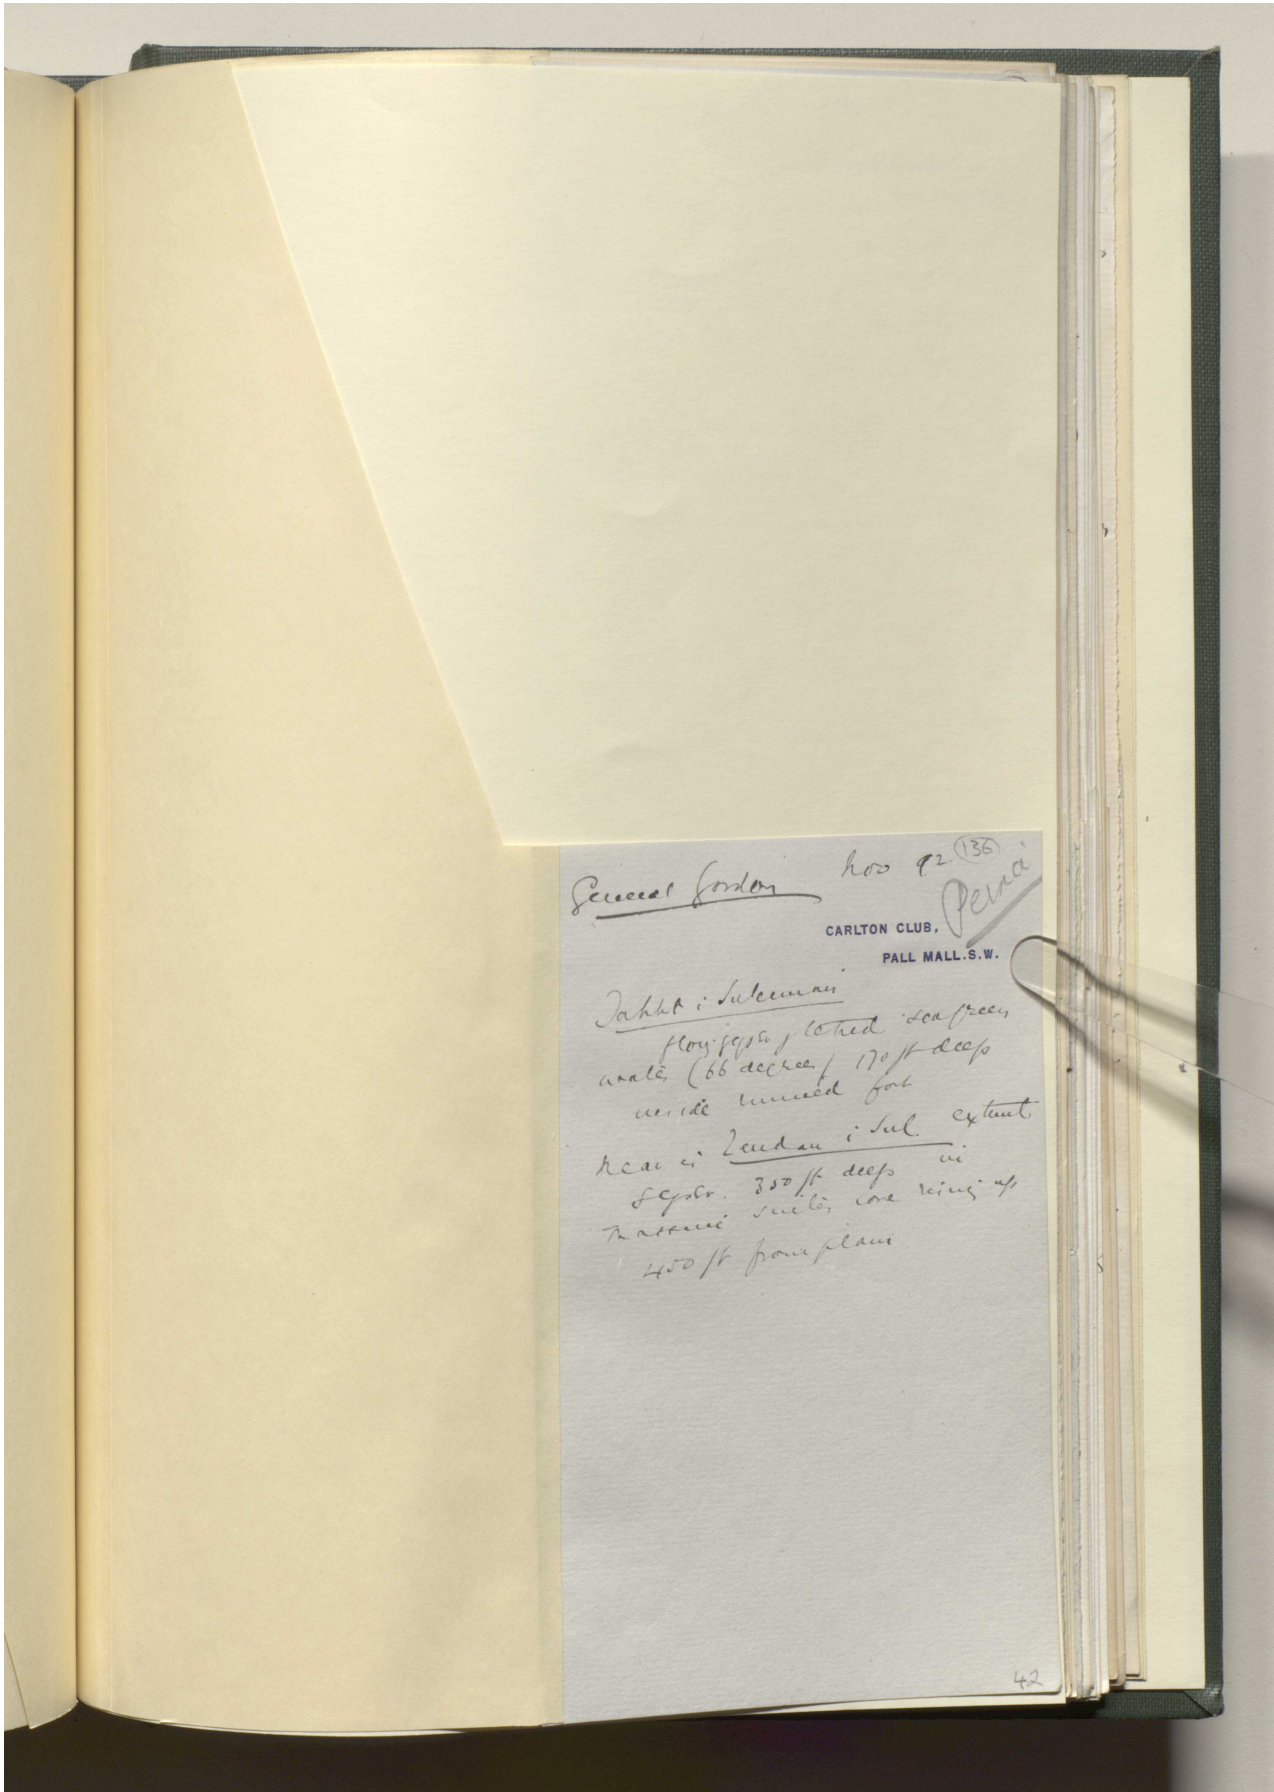 General Gordon Nov 92 136
Persia
CARLTON CLUB,
PALL MALL. S.W.
Takht i Suleiman
flowing geyser tepid sea green
water (66 degrees) 170 ft deep
inside ruined fort
Near is Zendan i Sul. extinct
geyser. 350 ft deep in
massive cone rising up
450 ft from plain
42